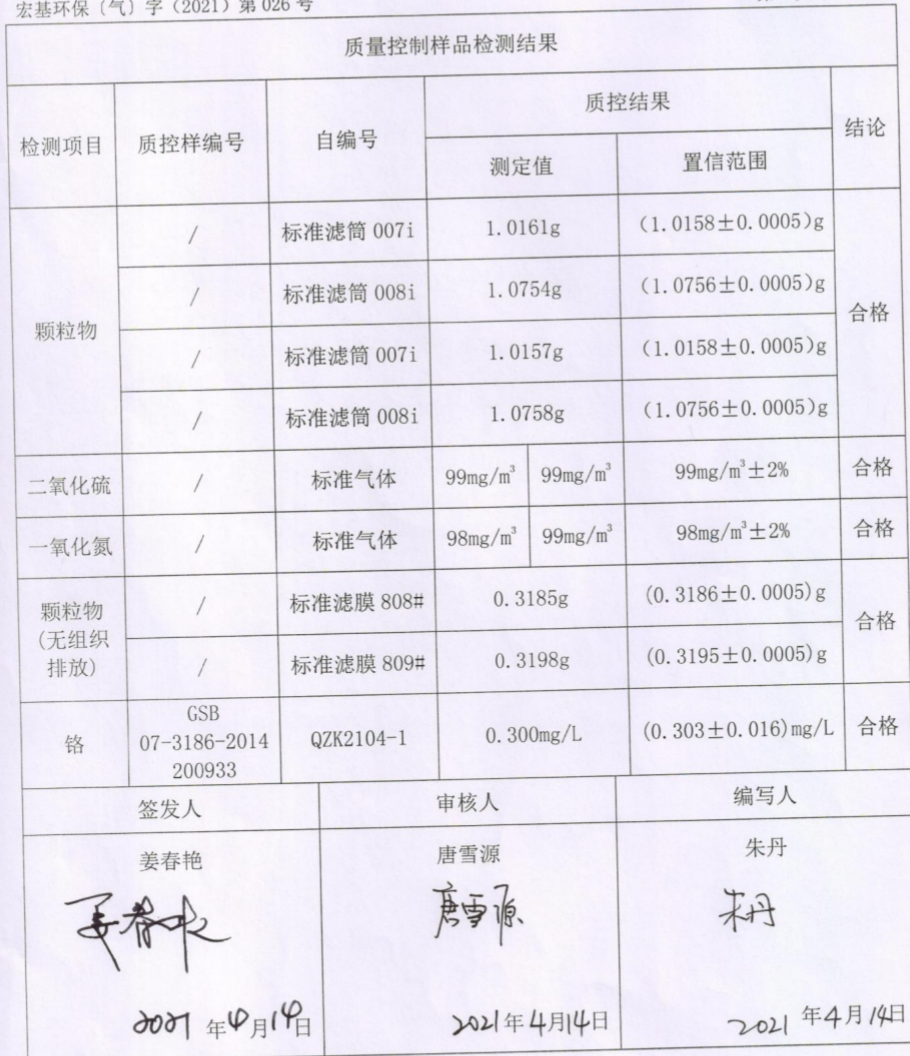 宏基环保〔气〕字（2021）第 026 号
质量控制样品检测结果
检测项目 质控样编号 自编号 质控结果 结论
测定值 置信范围
颗粒物 / 标准滤筒 007i 1.0161g (1.0158±0.0005)g 合格
/ 标准滤筒 008i 1.0754g (1.0756±0.0005)g
/ 标准滤筒 007i 1.0157g (1.0158±0.0005)g
/ 标准滤筒 008i 1.0758g (1.0756±0.0005)g
二氧化硫 / 标准气体 99mg/m³ 99mg/m³ 99mg/m³±2% 合格
一氧化氮 / 标准气体 98mg/m³ 99mg/m³ 98mg/m³±2% 合格
颗粒物
(无组织
排放) / 标准滤膜 808# 0.3185g (0.3186±0.0005)g 合格
/ 标准滤膜 809# 0.3198g (0.3195±0.0005)g
铬 GSB
07-3186-2014
200933 QZK2104-1 0.300mg/L (0.303±0.016)mg/L 合格
签发人 审核人 编写人
姜春艳 唐雪源 朱丹
姜春艳 唐雪源 朱丹
2021 年 4 月 14 日 2021 年 4 月 14 日 2021 年 4 月 14 日